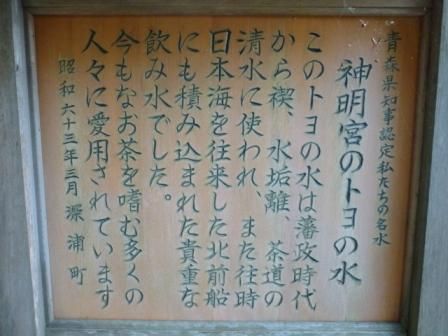 青森県知事認定私たちの名水
神明宮のトヨの水
このトヨの水は藩政時代
から禊、水垢離、茶道の
清水に使われ、また往時
日本海を往来した北前船
にも積み込まれた貴重な
飲み水でした。
今もなお茶を嗜む多くの
人々に愛用されています
昭和六十三年三月 深浦町